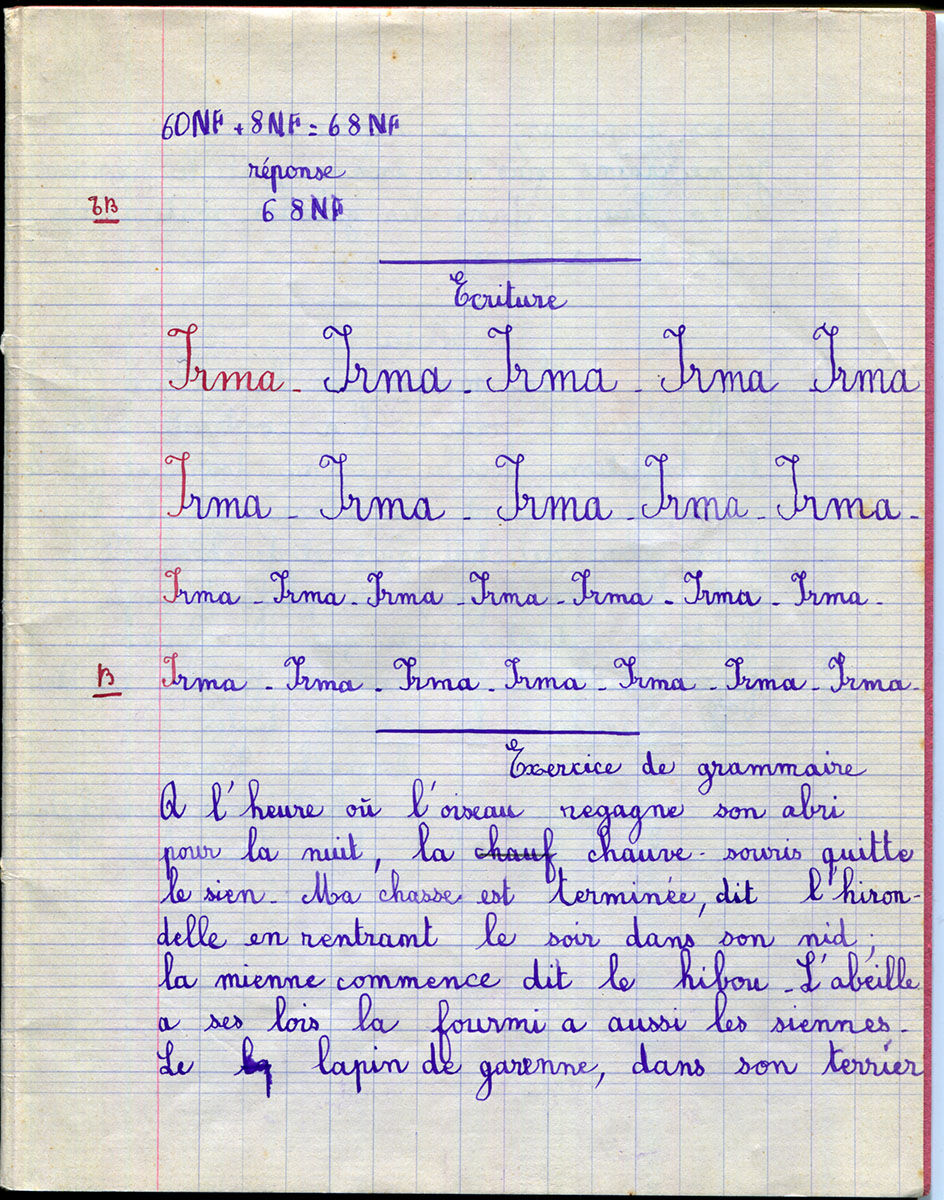 60NF + 8NF = 68NF
réponse
TB 68NF
Ecriture
Irma - Irma - Irma - Irma Irma
Irma - Irma - Irma - Irma - Irma -
Irma - Irma - Irma - Irma - Irma - Irma - Irma -
B Irma - Irma - Irma - Irma - Irma - Irma - Irma -
Exercice de grammaire
A l'heure où l'oiseau regagne son abri
pour la nuit, la chauf chauve-souris quitte
le sien - Ma chasse est terminée, dit l'hiron-
delle en rentrant le soir dans son nid ;
la mienne commence dit le hibou - L'abeille
a ses lois la fourmi a aussi les siennes -
Le lapin de garenne, dans son terrier